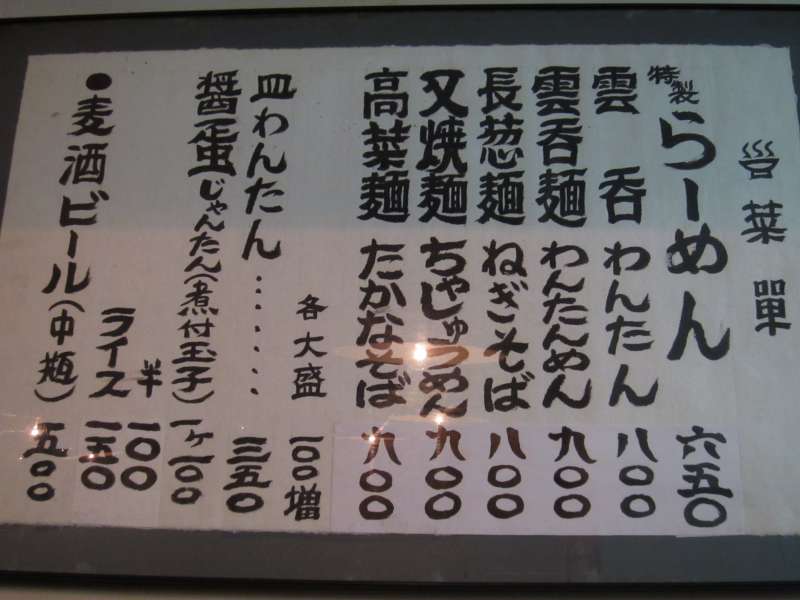 菜單
特製らーめん 六五〇
雲呑 わんたん 八〇〇
雲呑麺 わんたんめん 九〇〇
長葱麺 ねぎそば 八〇〇
叉焼麺 ちゃしゅうめん 九〇〇
高菜麺 たかなそば 九〇〇
各大盛 一〇〇増
皿わんたん…… 三五〇
醤蛋じゃんたん(煮付玉子) 一ヶ一〇〇
半 一〇〇
ライス 一五〇
●麦酒ビール(中瓶) 五〇〇